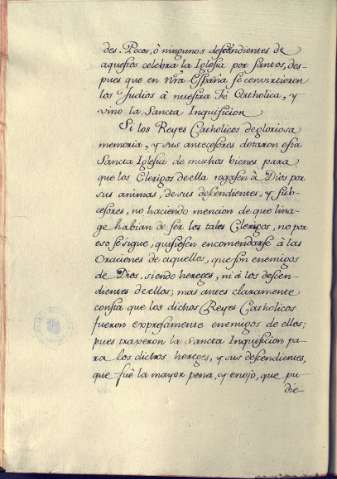 des. Pocos, ò ningunos descendientes de
aquestos celebra la Iglesia por santos, des-
pues que en nr̃a España se convirtieron
los Judios à nuestra Fè Catholica, y
vino la Sancta Inquisicion.
Si los Reyes Catholicos de gloriosa
memoria, y sus antecesores dotaron esta
Sancta Iglesia de muchos bienes para
que los Clerigos de ella rogasen à Dios por
sus animas, de sus descendientes, y sub-
cesores, no haciendo mencion de que lina-
ge habian de ser los tales Clerigos, no por
eso se sigue, quisiesen encomendarse à las
Oraciones de aquellos, que son enemigos
de Dios, siendo hereges, ni à los descen-
dientes de ellos; mas antes claramente
consta que los dichos Reyes Catholicos
fueron expresamente enemigos de ellos;
pues traxeron la Sancta Inquisicion pa-
ra los dichos hereges, y sus descendientes,
que fuè la mayor pena, y enojo, que pu-
die-